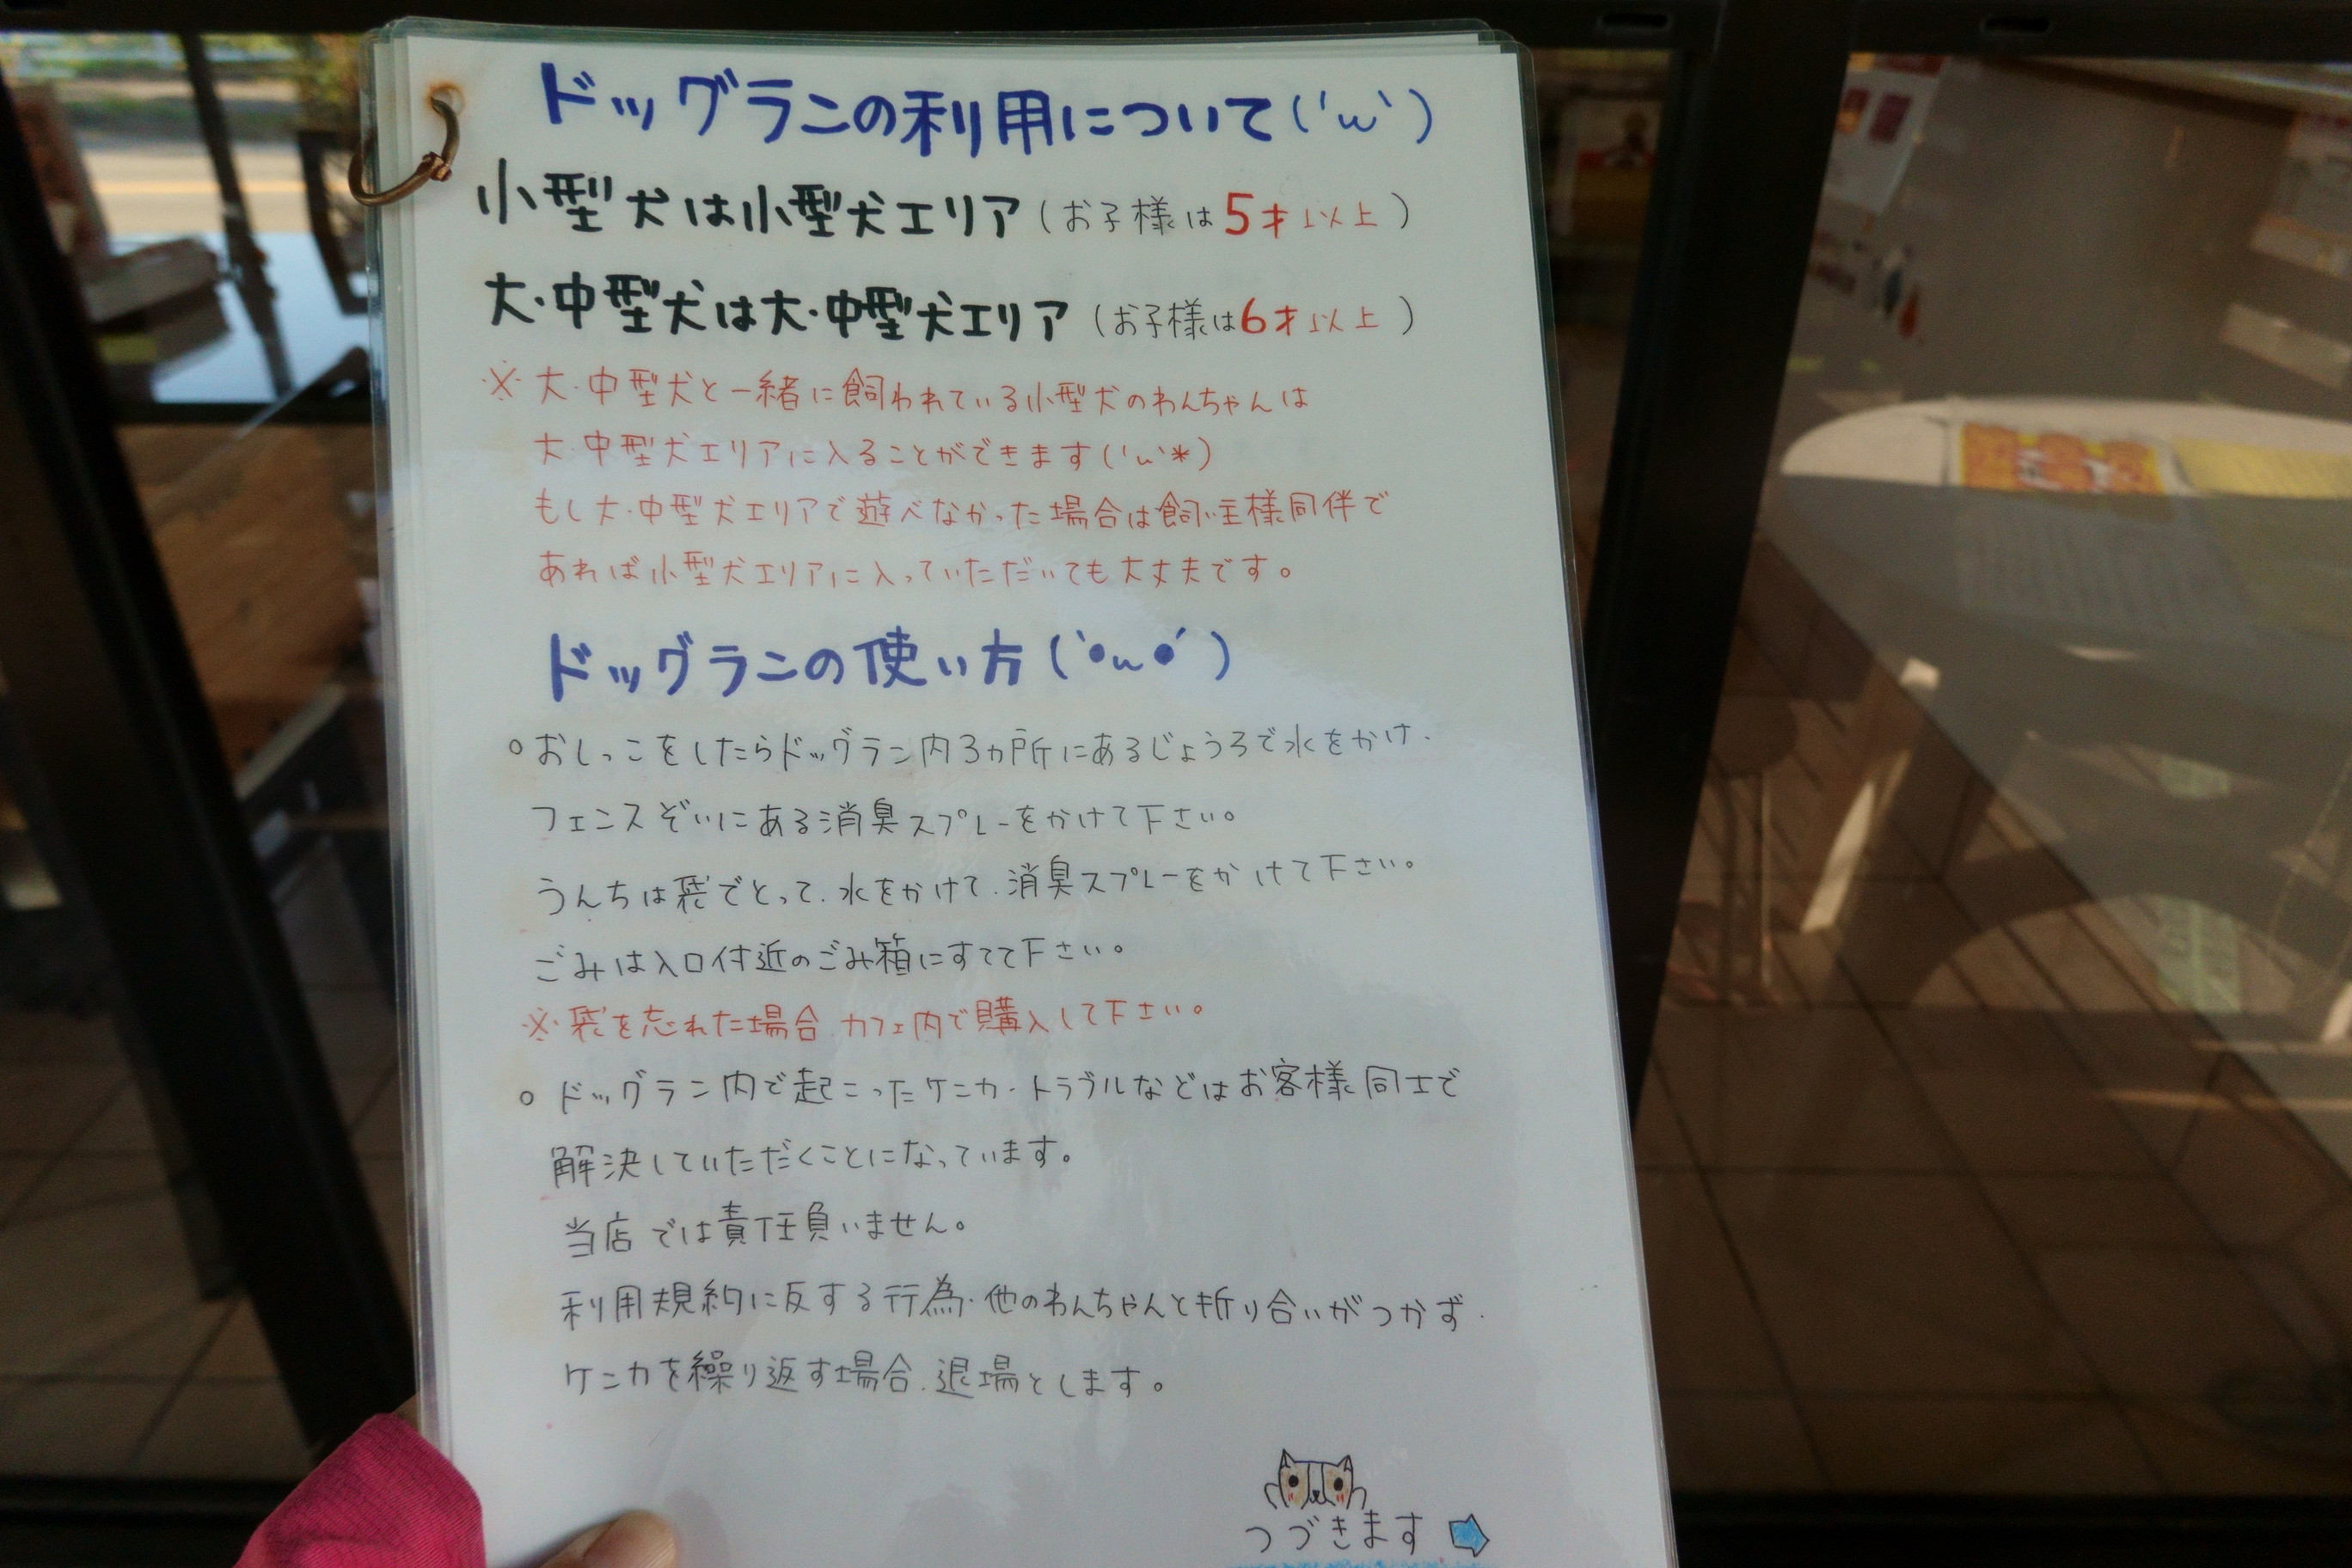 ドッグランの利用について('ω`)
小型犬は小型犬エリア(お子様は5才以上)
大・中型犬は大・中型犬エリア(お子様は6才以上)
※大・中型犬と一緒に飼われている小型犬のわんちゃんは
大・中型犬エリアに入ることができます('ω'*)
もし大・中型犬エリアで遊べなかった場合は飼い主様同伴で
あれば小型犬エリアに入っていただいても大丈夫です。
ドッグランの使い方(`•ω•´)
○おしっこをしたらドッグラン内3ヵ所にあるじょうろで水をかけ、
フェンスぞいにある消臭スプレーをかけて下さい。
うんちは袋でとって、水をかけて、消臭スプレーをかけて下さい。
ごみは入口付近のごみ箱にすてて下さい。
※袋を忘れた場合、カフェ内で購入して下さい。
○ドッグラン内で起こったケンカ・トラブルなどはお客様同士で
解決していただくことになっています。
当店では責任負いません。
利用規約に反する行為・他のわんちゃんと折り合いがつかず、
ケンカを繰り返す場合、退場とします。
つづきます